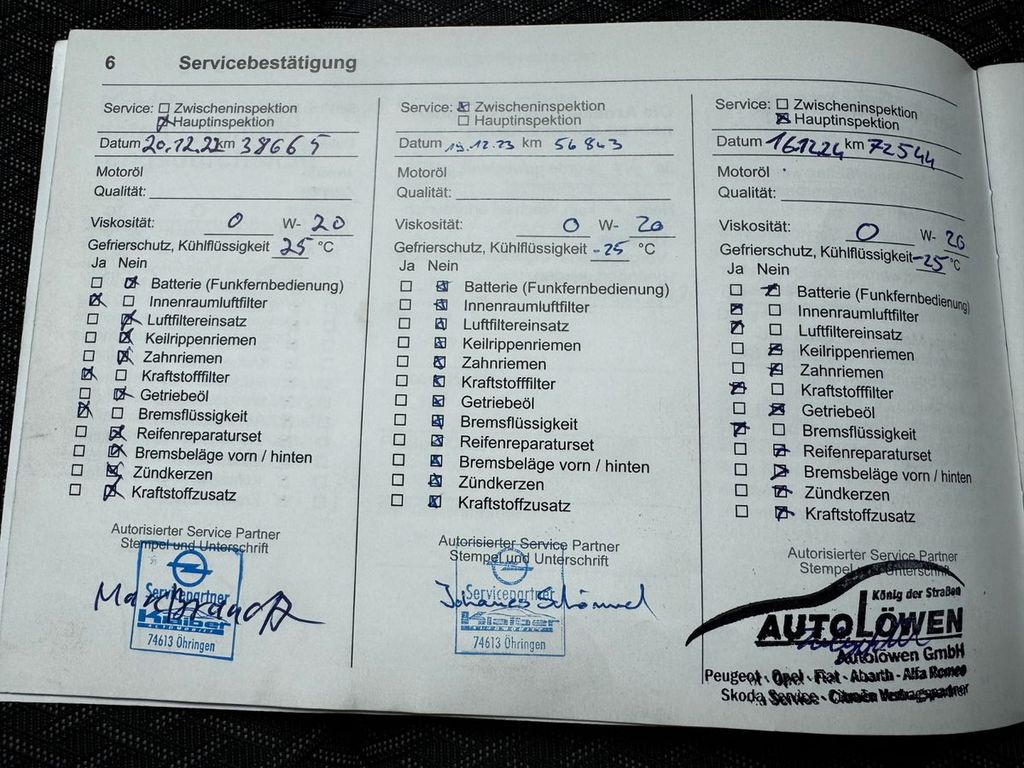 6 Servicebestätigung
Service: ☐ Zwischeninspektion
☒ Hauptinspektion
Datum 20.12.22 km 38665
Motoröl
Qualität:
Viskosität: 0 W- 20
Gefrierschutz, Kühlflüssigkeit 25 °C
Ja Nein
☐ ☒ Batterie (Funkfernbedienung)
☒ ☐ Innenraumluftfilter
☐ ☒ Luftfiltereinsatz
☐ ☒ Keilrippenriemen
☐ ☒ Zahnriemen
☒ ☐ Kraftstofffilter
☐ ☒ Getriebeöl
☒ ☐ Bremsflüssigkeit
☐ ☒ Reifenreparaturset
☐ ☒ Bremsbeläge vorn / hinten
☐ ☒ Zündkerzen
☐ ☒ Kraftstoffzusatz
Autorisierter Service Partner
Stempel und Unterschrift
Servicepartner
Kleiber
74613 Öhringen
Service: ☒ Zwischeninspektion
☐ Hauptinspektion
Datum 19.12.23 km 56843
Motoröl
Qualität:
Viskosität: 0 W- 20
Gefrierschutz, Kühlflüssigkeit -25 °C
Ja Nein
☐ ☒ Batterie (Funkfernbedienung)
☐ ☒ Innenraumluftfilter
☐ ☒ Luftfiltereinsatz
☐ ☒ Keilrippenriemen
☐ ☒ Zahnriemen
☐ ☒ Kraftstofffilter
☐ ☒ Getriebeöl
☐ ☒ Bremsflüssigkeit
☐ ☒ Reifenreparaturset
☐ ☒ Bremsbeläge vorn / hinten
☐ ☒ Zündkerzen
☐ ☒ Kraftstoffzusatz
Autorisierter Service Partner
Stempel und Unterschrift
Servicepartner
Johannes
Kleiber
74613 Öhringen
Service: ☐ Zwischeninspektion
☒ Hauptinspektion
Datum 161224 km 72544
Motoröl
Qualität:
Viskosität: 0 W- 20
Gefrierschutz, Kühlflüssigkeit -25 °C
Ja Nein
☐ ☒ Batterie (Funkfernbedienung)
☒ ☐ Innenraumluftfilter
☒ ☐ Luftfiltereinsatz
☐ ☒ Keilrippenriemen
☐ ☒ Zahnriemen
☒ ☐ Kraftstofffilter
☐ ☒ Getriebeöl
☒ ☐ Bremsflüssigkeit
☐ ☒ Reifenreparaturset
☐ ☒ Bremsbeläge vorn / hinten
☐ ☒ Zündkerzen
☐ ☒ Kraftstoffzusatz
Autorisierter Service Partner
Stempel und Unterschrift
König der Straßen
AUTOLÖWEN
Autolöwen GmbH
Peugeot · Opel · Fiat · Abarth · Alfa Romeo
Skoda Service · Citroën Vertragspartner